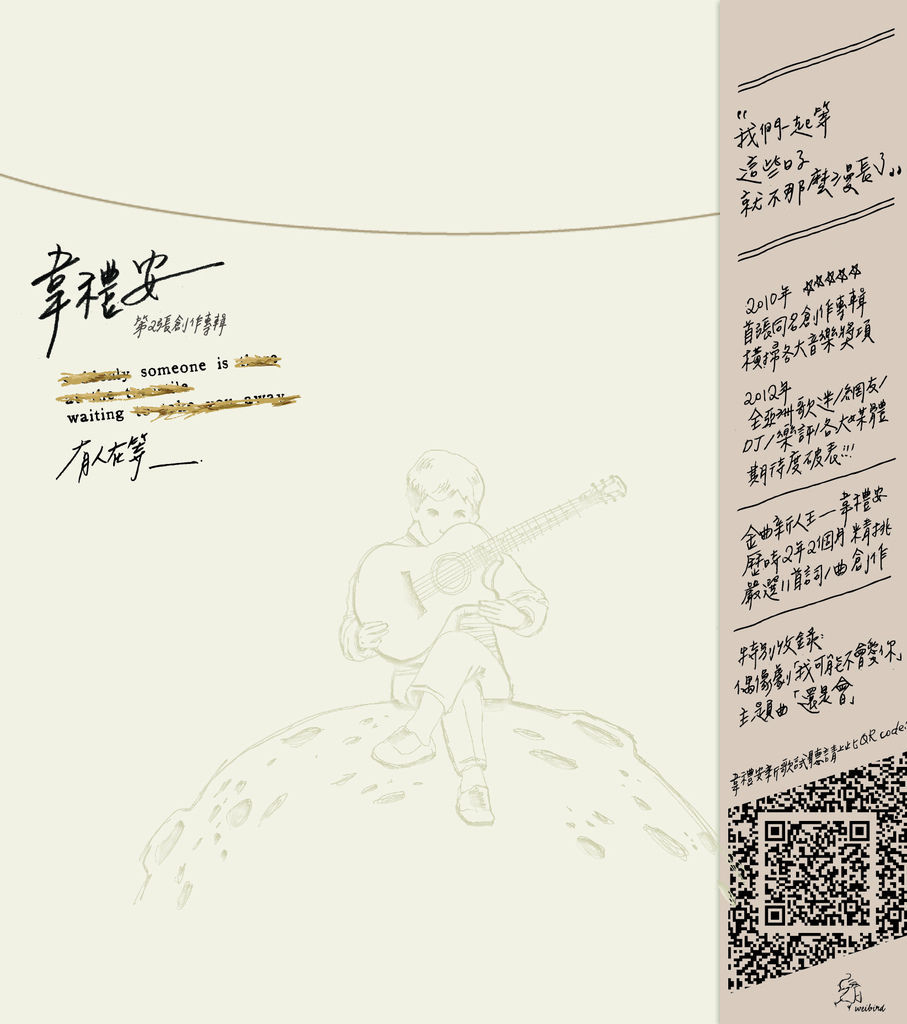 韋禮安
第2張創作專輯
someone is
waiting
有人在等__.
“我們一起等
這些日子
就不那麼漫長了”
2010年 ☆☆☆☆☆
首張同名創作專輯
橫掃各大音樂獎項
2012年
全亞洲歌迷/網友/
DJ/樂評/各大媒體
期待度破表!!!
金曲新人王—韋禮安
歷時2年2個月精挑
嚴選11首詞/曲創作
特別收錄:
偶像劇「我可能不會愛你」
主題曲「還是會」
韋禮安新歌試聽請上此QR code:
weibird